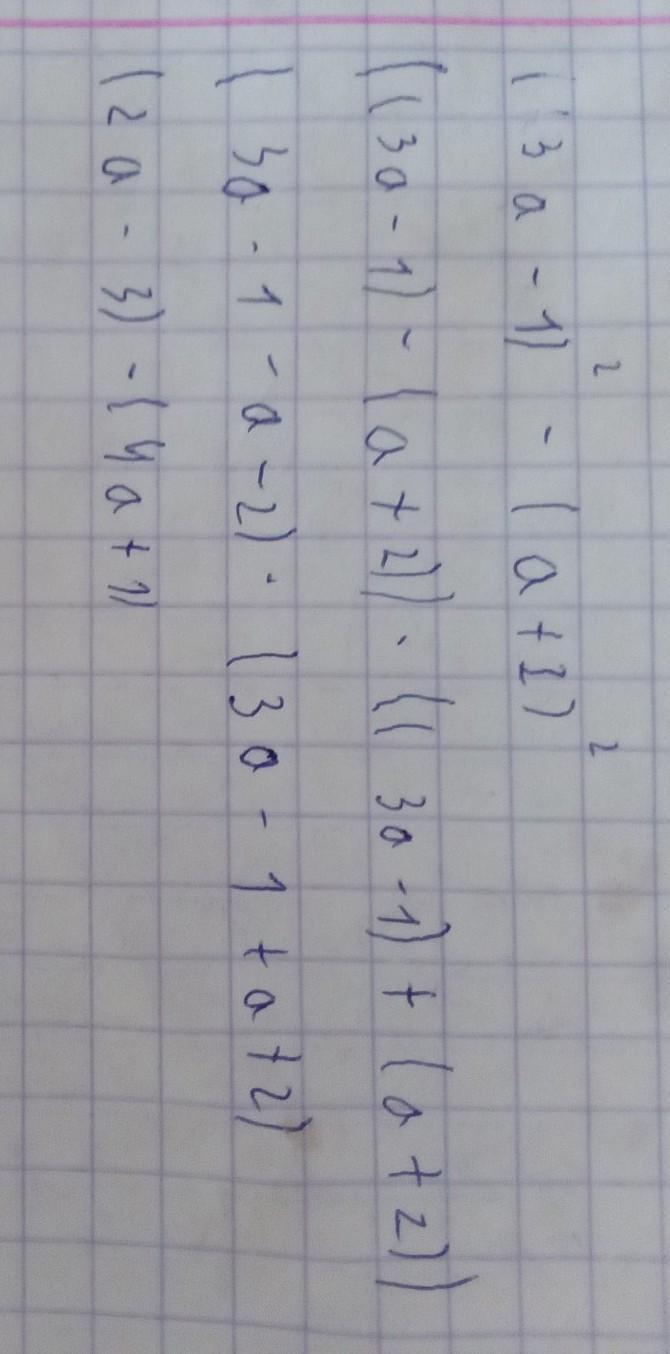 (3a - 1)² - (a + 2)²
((3a - 1) - (a + 2)) · ((3a - 1) + (a + 2))
(3a - 1 - a - 2) · (3a - 1 + a + 2)
(2a - 3) - (4a + 1)